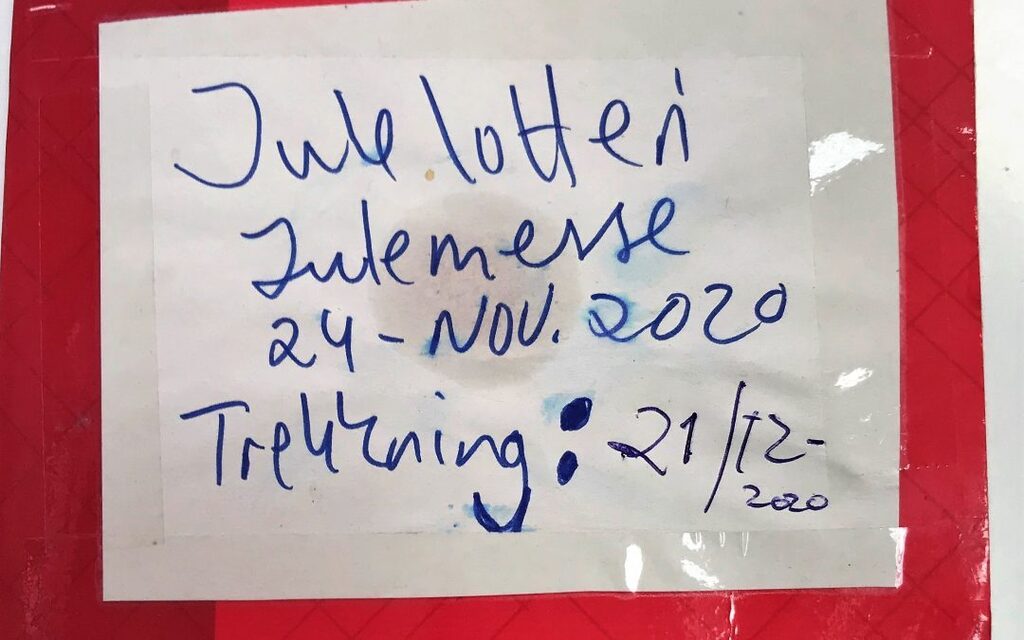 Jule lotteri
Julemesse
24-NOV. 2020
Trekkning: 21/12-
2020